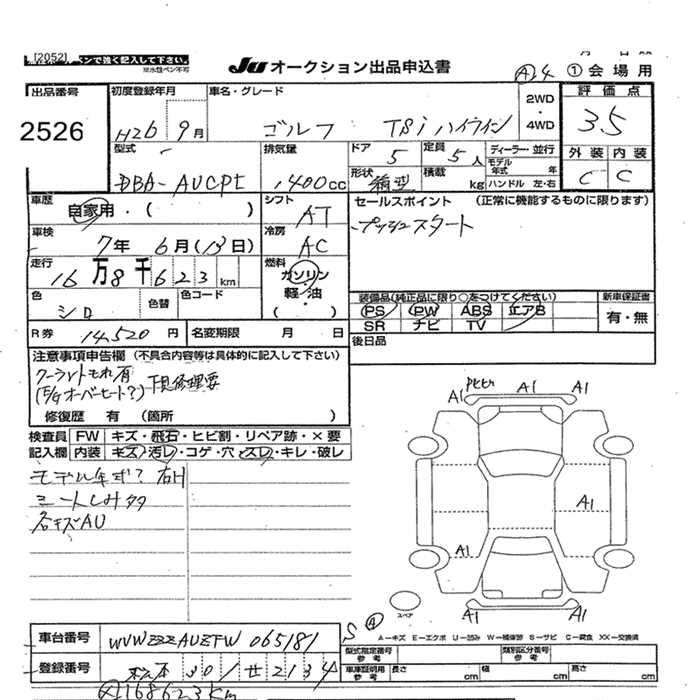 [2052]
ペンで強く記入して下さい。
※水性ペン不可
JU オークション出品申込書
A4
①会場用
出品番号
2526
初度登録年月
H26 9月
車名・グレード
ゴルフ TSiハイライン
2WD
・
4WD
評価点
3.5
型式
DBA-AUCPT
排気量
1400cc
ドア
5
定員
5人
形状
箱型
積載
kg
ディーラー・並行
モデル年式 年
ハンドル 左・右
外装 内装
C C
車歴
自家用・( )
シフト
AT
セールスポイント (正常に機能するものに限ります)
プッシュスタート
車検
7年 6月(13日)
冷房
AC
走行
16万8千623km
燃料
ガソリン
軽油
色
シロ
色替
色コード
装備品(純正品に限り○をつけてください)
PS PW ABS エアB
SR ナビ TV
新車保証書
有・無
R券 14,520円
名変期限 月 日
後日品
注意事項申告欄 (不具合内容等は具体的に記入して下さい)
クーラントもれ有
(E/Gオーバーヒート?) 下見修理要
修復歴 有 (箇所 )
検査員
記入欄
FW キズ・飛石・ヒビ割・リペア跡・×要
内装 キズ・汚レ・コゲ・穴・スレ・キレ・破レ
モデル年式? 右H
シートしみ多
各キズAU
A1
A1
A1
A1
A1
A1
スペア
車台番号
WVWZZZAUZFW065181
登録番号
松本 301 せ 2134
A 168623km
S A
A-キズ E-エクボ U-凹み W-補修跡 S-サビ C-腐食 XX-交換済
型式指定番号
参考
類別区分番号
参考
車庫証明用
参考
長さ cm
幅 cm
高さ cm